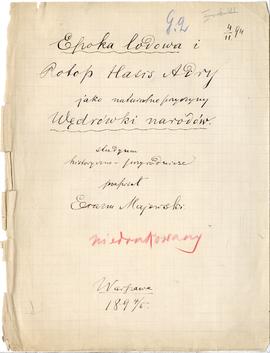 G.2
4/II 94
Epoka lodowa i
Potop Hasis Adry
jako naturalne przyczyny
Wędrówki narodów.
studyum
historyczno-przyrodnicze
Erazm Majewski
niedrukowany
Warszawa